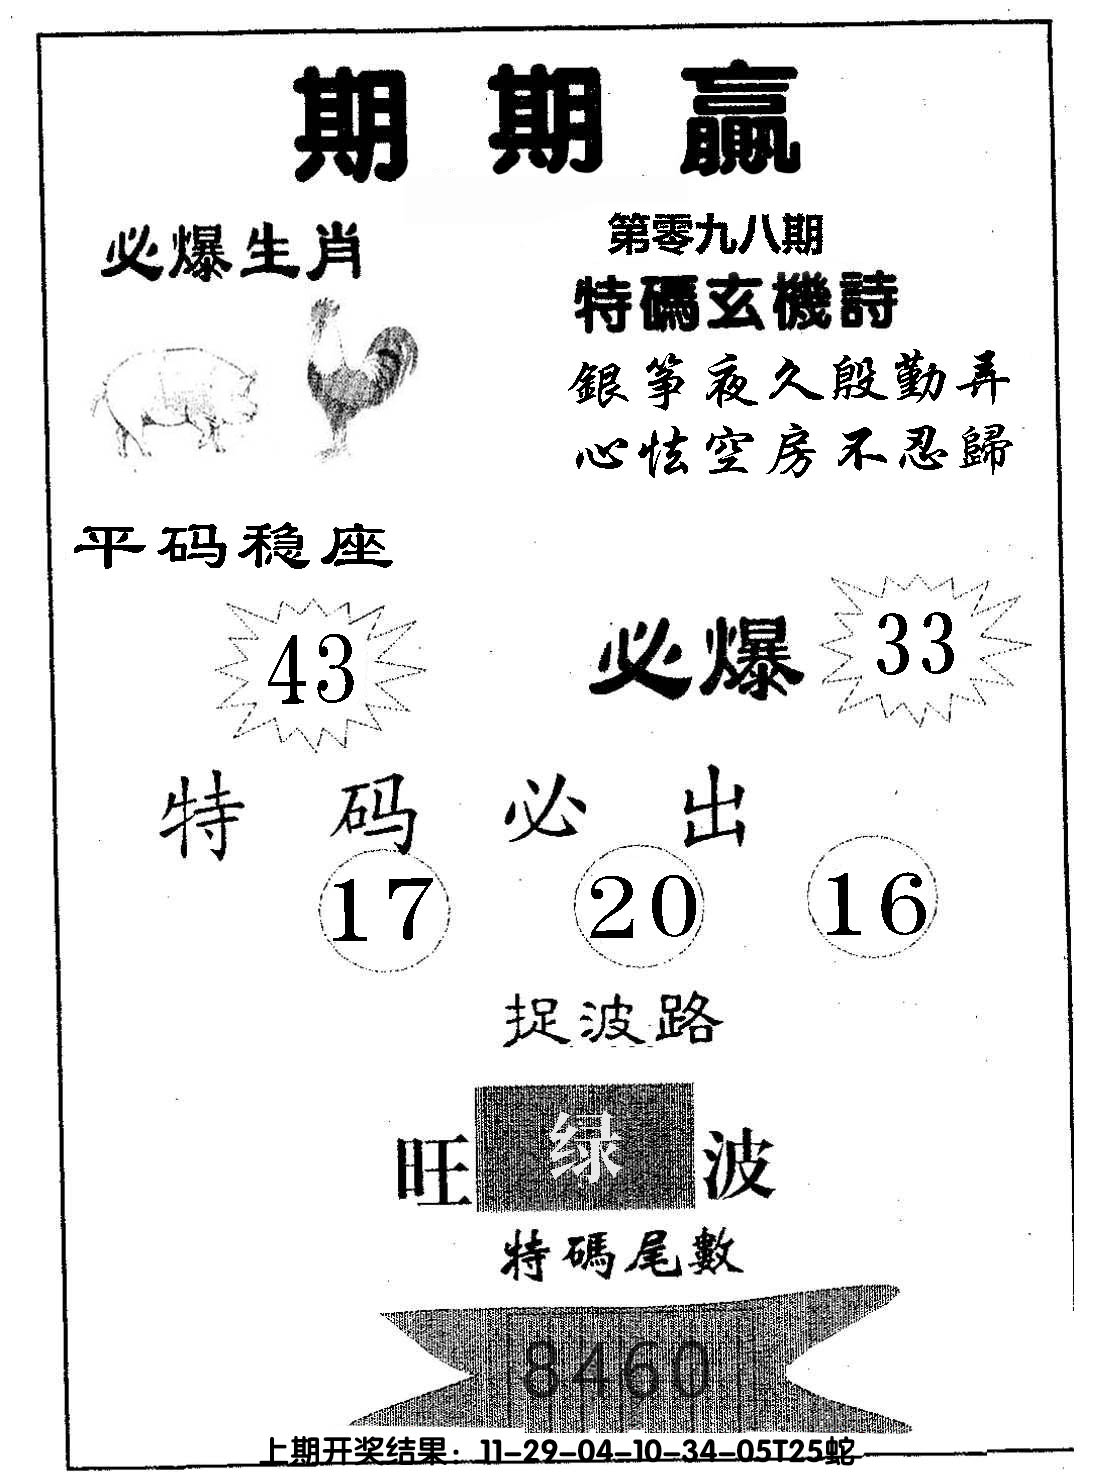 期期赢
必爆生肖
第零九八期
特碼玄機詩
銀筝夜久殷勤弄
心怯空房不忍歸
平码稳座
43
必爆 33
特码必出
17 20 16
捉波路
旺 绿 波
特碼尾數
8460
上期开奖结果：11-29-04-10-34-05T25蛇